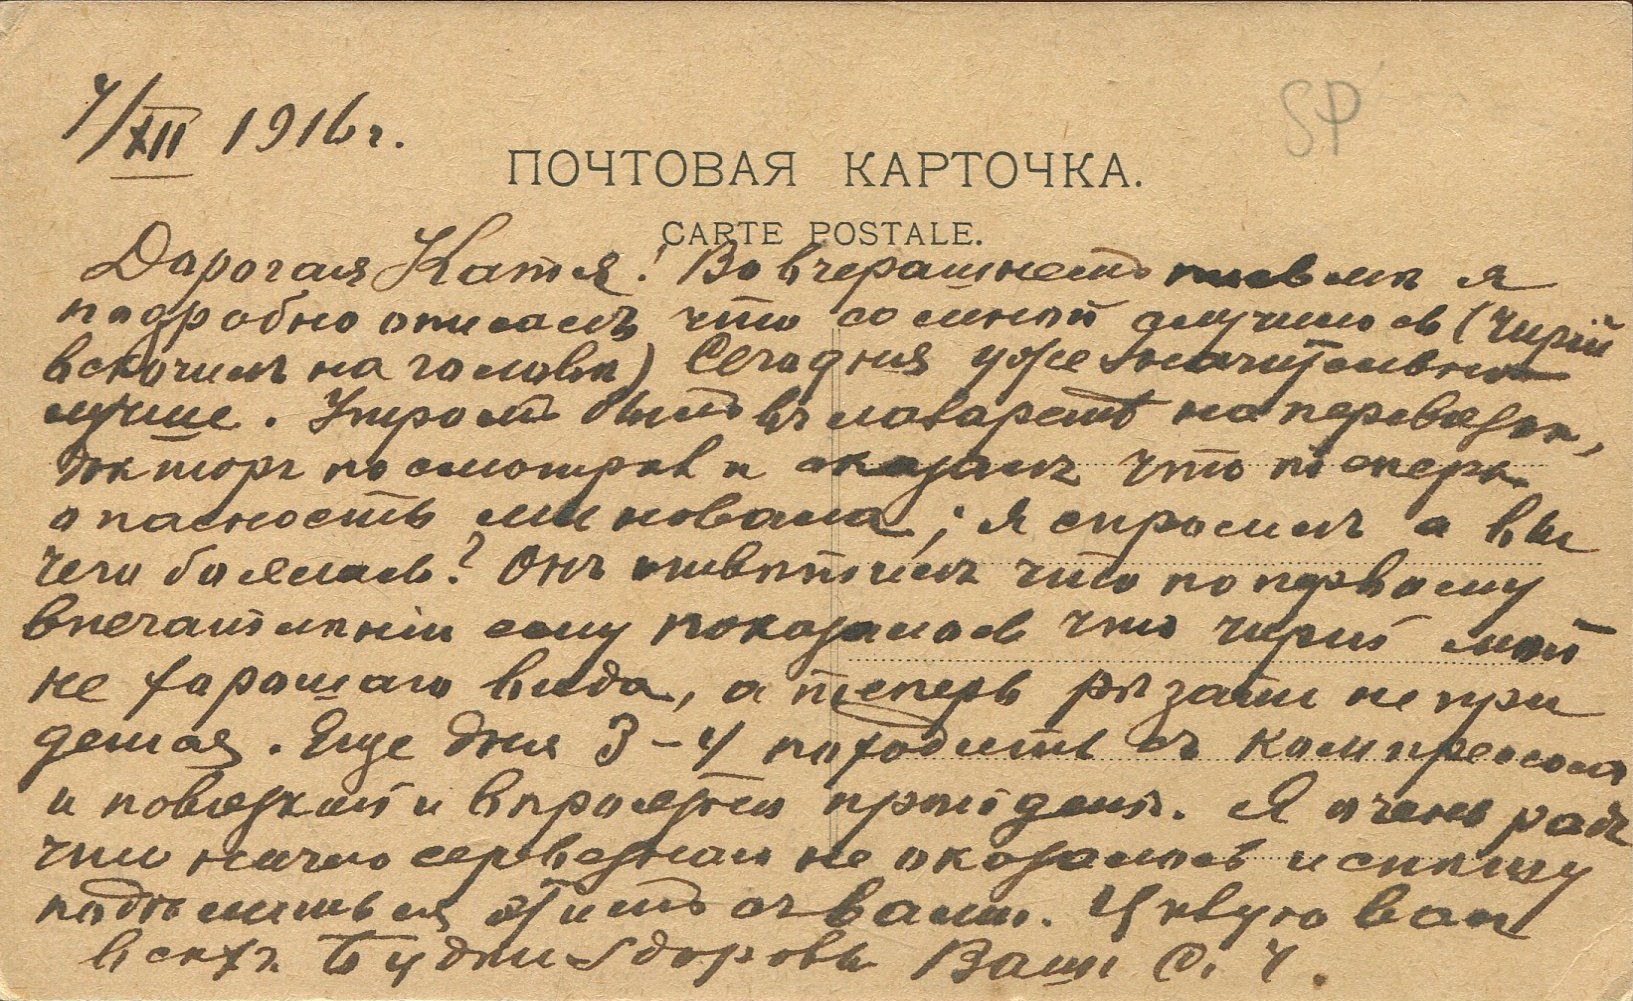 4/XII 1916 г.
SP
ПОЧТОВАЯ КАРТОЧКА.
CARTE POSTALE.
Дорогая Катя! Во вчерашнемъ письмѣ я
подробно описалъ что со мной случилось (чирій
вскочилъ на головѣ) Сегодня уже значительно
лучше. Утромъ былъ въ лазаретѣ на перевязкѣ,
докторъ посмотрѣвъ и сказалъ что теперь
опасность миновала; я спросилъ а вы
чего боялись? Онъ отвѣтилъ что по первому
впечатлѣнію ему показалось что чирій мой
не хорошаго вида, а теперь рѣзать не при
дется. Еще дня 3-4 походить съ компрессомъ
и повязкой и вѣроятно пройдетъ. Я очень радъ
что ничего серьезнаго не оказалось и спѣшу
подѣлиться этимъ съ вами. Цѣлую васъ
всѣхъ Будьте здоровы Вашъ С. Ч.